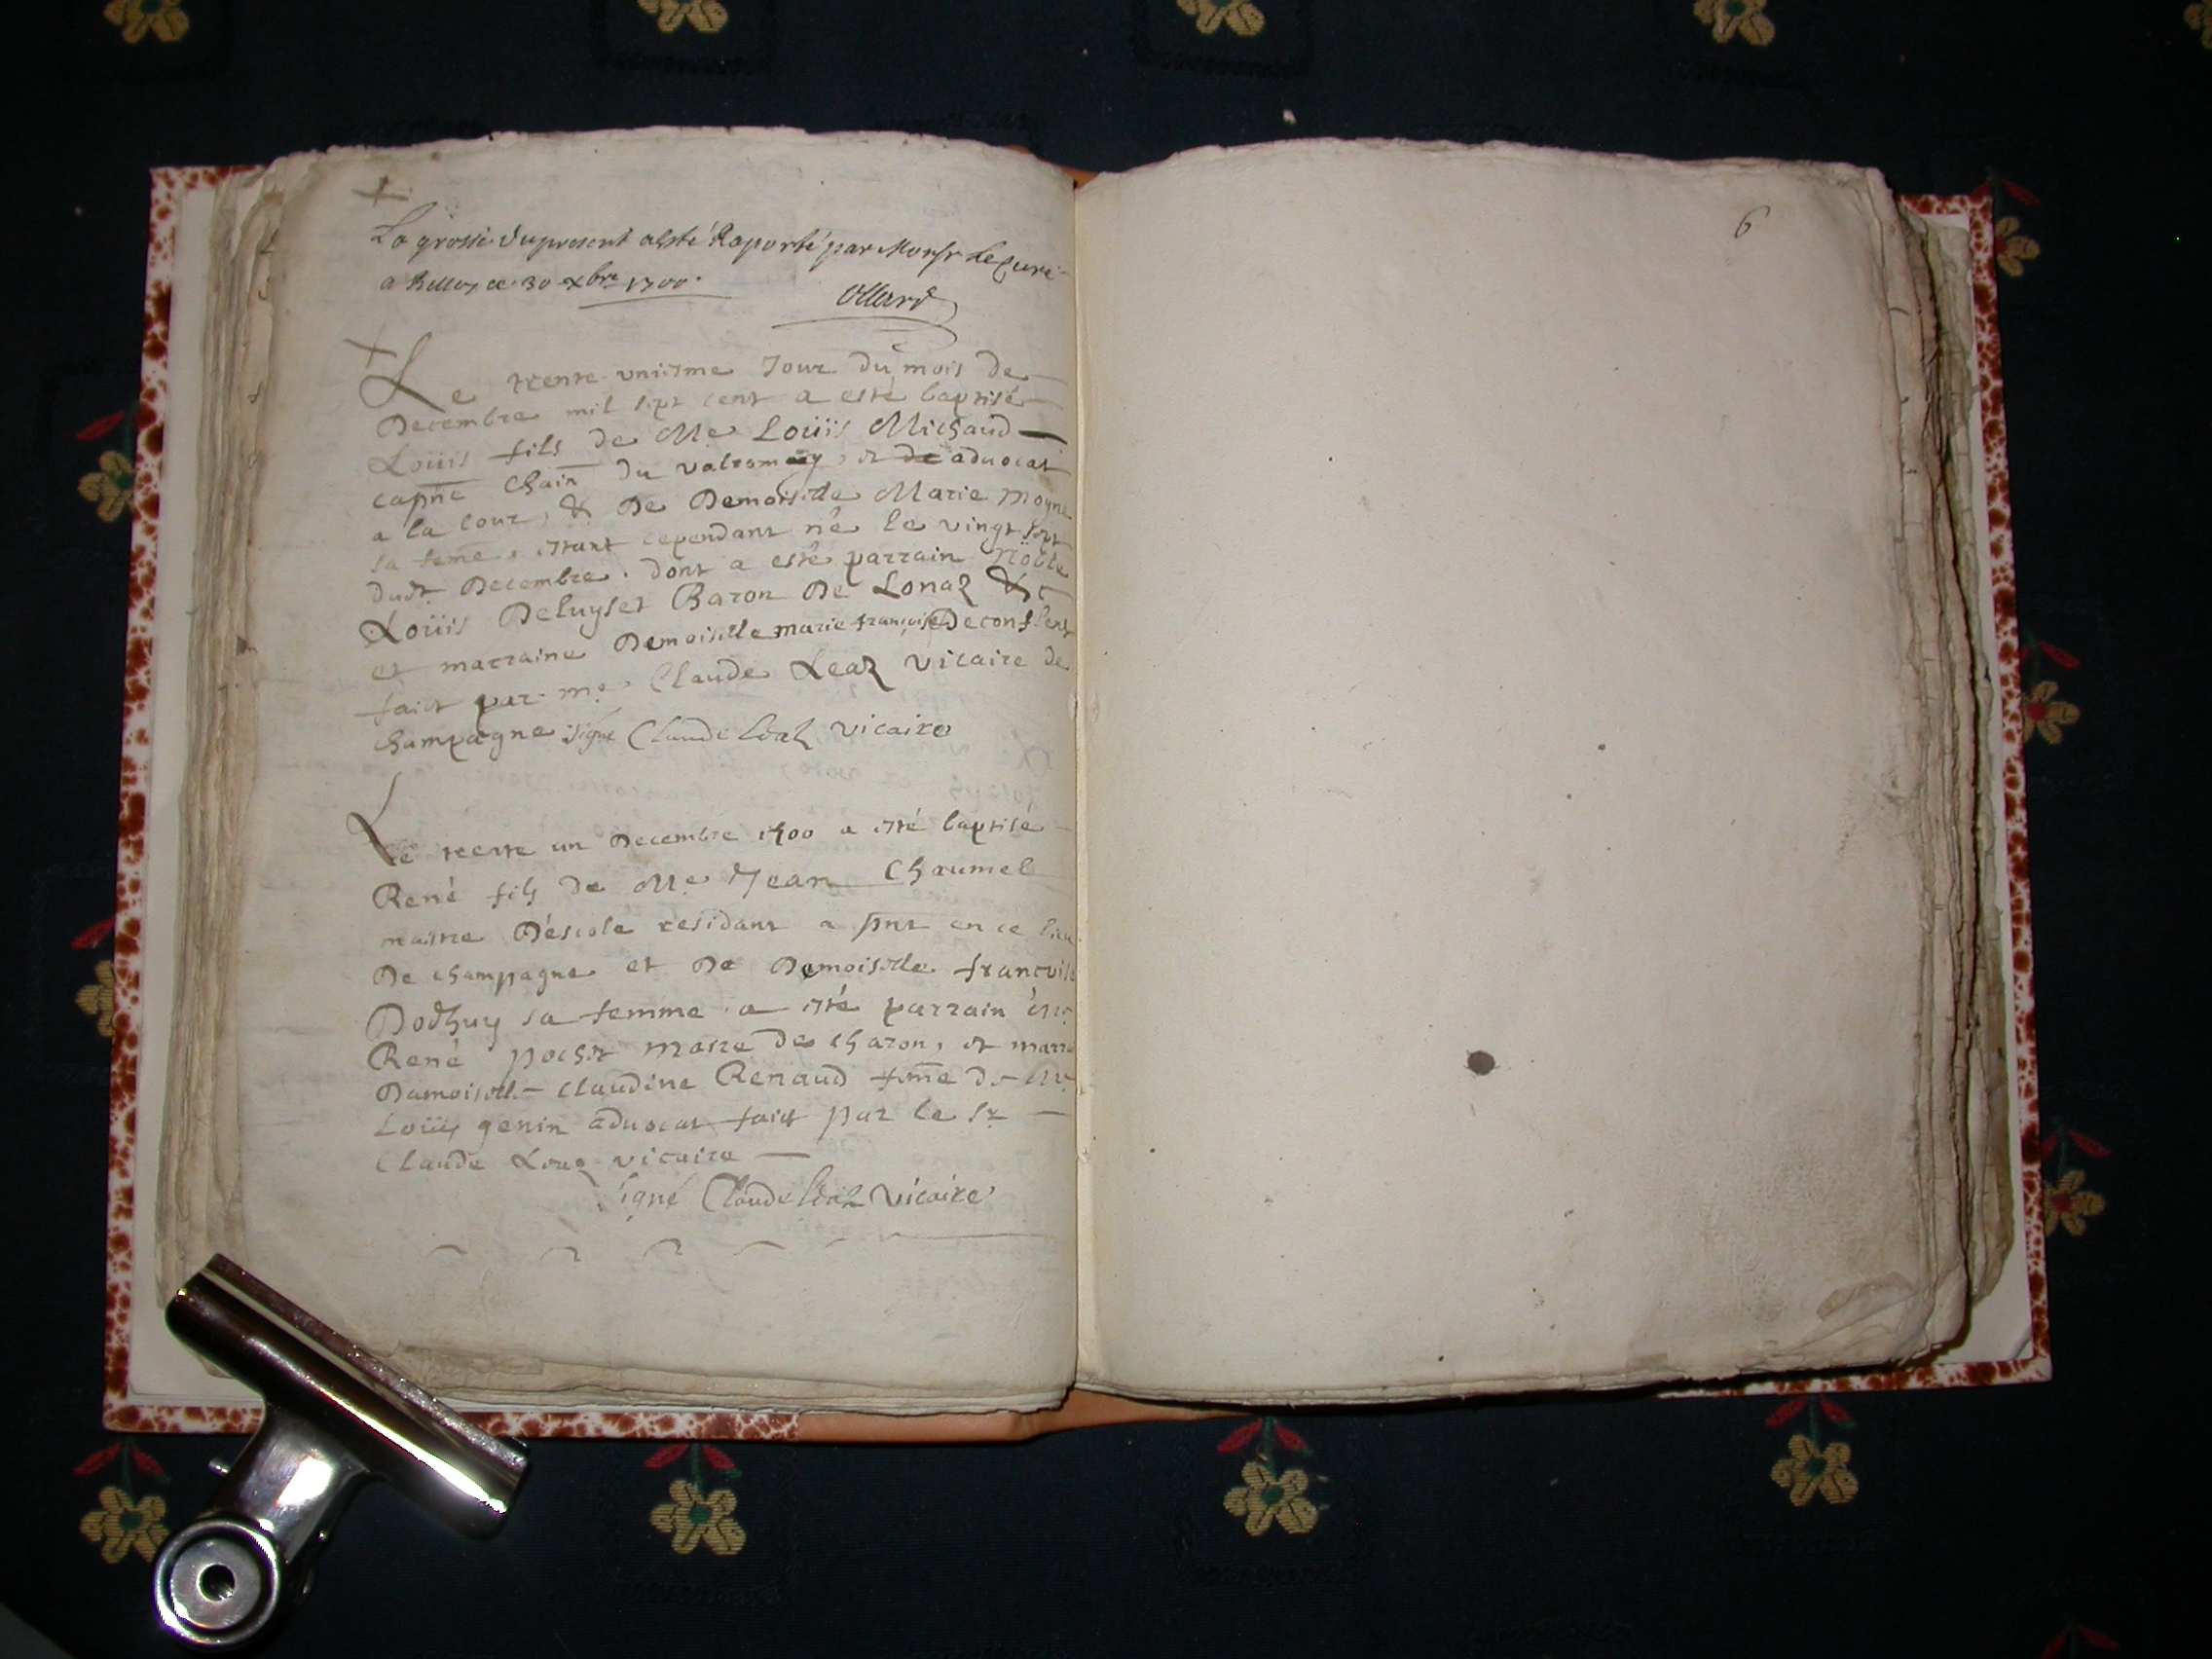 La grosse du present a esté Raporté par Monsr le Curé
a Belley ce 30 xbre 1700.
Ollard
Le trente uniesme Jour du mois de
Decembre mil sept cent a esté baptisé
Loüis fils de Me Loüis Michaud
capne Chain du valromey, et de advocat
a la Cour, & De Demoiselle Marie Moyne
sa feme, estant cependant né le vingt sept
dudt Decembre. dont a esté parrain noble
Loüis Deluyset Baron De Lonaz &c
et marraine Demoiselle marie françoise De conflens
faict par me Claude Leaz vicaire de
champagne signé Claude Léaz vicaire
Le trente un Decembre 1700 a esté baptisé
René fils de Me Jean Chaumel
maitre D'escole residant a pnt en ce lieu
De champagne et De Demoiselle francoise
sa femme a esté parrain Mr
René pochet de charon, et marr
Damoiselle Claudine Renaud feme de Mr
Loüis genin advocat faict par le Sr
Claude Leaz vicaire
Signé Claude Léaz Vicaire
6